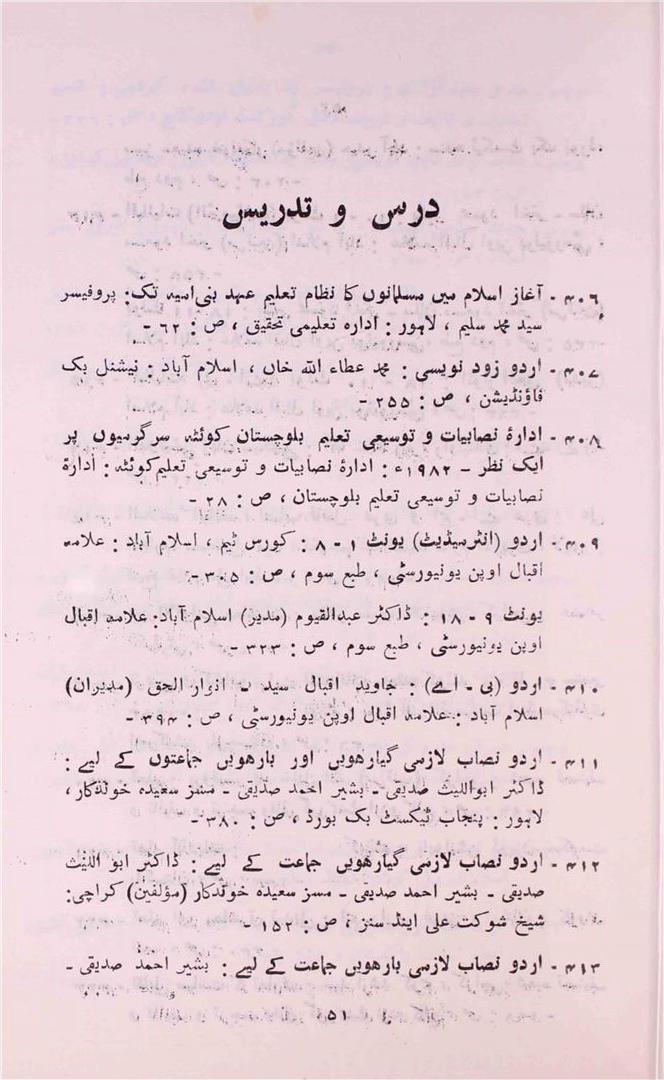 درس و تدریس
۴۰۶ - آغاز اسلام میں مسلمانوں کا نظام تعلیم عہد بنی امیہ تک: پروفیسر
سید محمد سلیم ، لاہور : ادارہ تعلیمی تحقیق ، ص : ۶۲ -
۴۰۷ - اردو زود نویسی : محمد عطاء اللہ خاں ، اسلام آباد : نیشنل بک
فاؤنڈیشن ، ص : ۲۵۵ -
۴۰۸ - ادارۂ نصابیات و توسیعی تعلیم بلوچستان کوئٹہ سرگرمیوں پر
ایک نظر - ۱۹۸۲ء : ادارۂ نصابیات و توسیعی تعلیم کوئٹہ : ادارۂ
نصابیات و توسیعی تعلیم بلوچستان ، ص : ۲۸ -
۴۰۹ - اردو (انٹرمیڈیٹ) یونٹ ۱ - ۸ : کورس ٹیم ، اسلام آباد : علامہ
اقبال اوپن یونیورسٹی ، طبع سوم ، ص : ۳۰۵ -
یونٹ ۹ - ۱۸ : ڈاکٹر عبدالقیوم (مدیر) اسلام آباد: علامہ اقبال
اوپن یونیورسٹی ، طبع سوم ، ص : ۳۲۳ -
۴۱۰ - اردو (بی - اے) : جاوید اقبال سید - انوار الحق (مدیران)
اسلام آباد : علامہ اقبال اوپن یونیورسٹی ، ص : ۳۹۴ -
۴۱۱ - اردو نصاب لازمی گیارھویں اور بارھویں جماعتوں کے لیے :
ڈاکٹر ابواللیث صدیقی - بشیر احمد صدیقی - مسز سعیدہ خوندکار،
لاہور : پنجاب ٹیکسٹ بک بورڈ ، ص : ۳۸۰ -
۴۱۲ - اردو نصاب لازمی گیارھویں جماعت کے لیے : ڈاکٹر ابو اللیث
صدیقی - بشیر احمد صدیقی - مسز سعیدہ خوندکار (مؤلفین) کراچی :
شیخ شوکت علی اینڈ سنز ، ص : ۱۵۲ -
۴۱۳ - اردو نصاب لازمی بارھویں جماعت کے لیے : بشیر احمد صدیقی -
۵۱